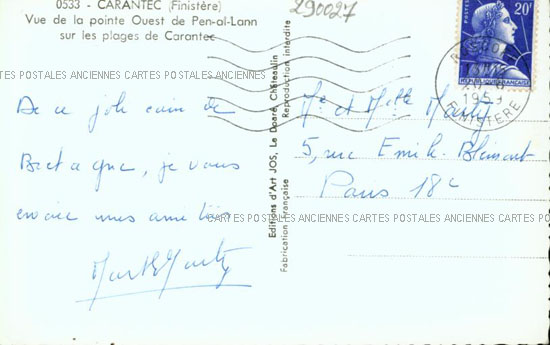 0533 - CARANTEC (Finistère)
Vue de la pointe Ouest de Pen-al-Lann
sur les plages de Carantec
290027
20F
REPUBLIQUE FRANÇAISE
FINISTERE
CARTES POSTALES ANCIENNES CARTES POSTALES ANCIENNES CARTES POSTALES ANCIENNES CARTES POSTALES ANCIENNES
De ce joli coin de
Bretagne, je vous
envoie mes amitiés
Editions d'Art JOS, Le Doaré, Châteaulin
Reproduction interdite
Fabrication Française
Mr et Melle
5, rue Emile Blémont
Paris 18e
CARTES POSTALES ANCIENNES CARTES POSTALES ANCIENNES CARTES POSTALES